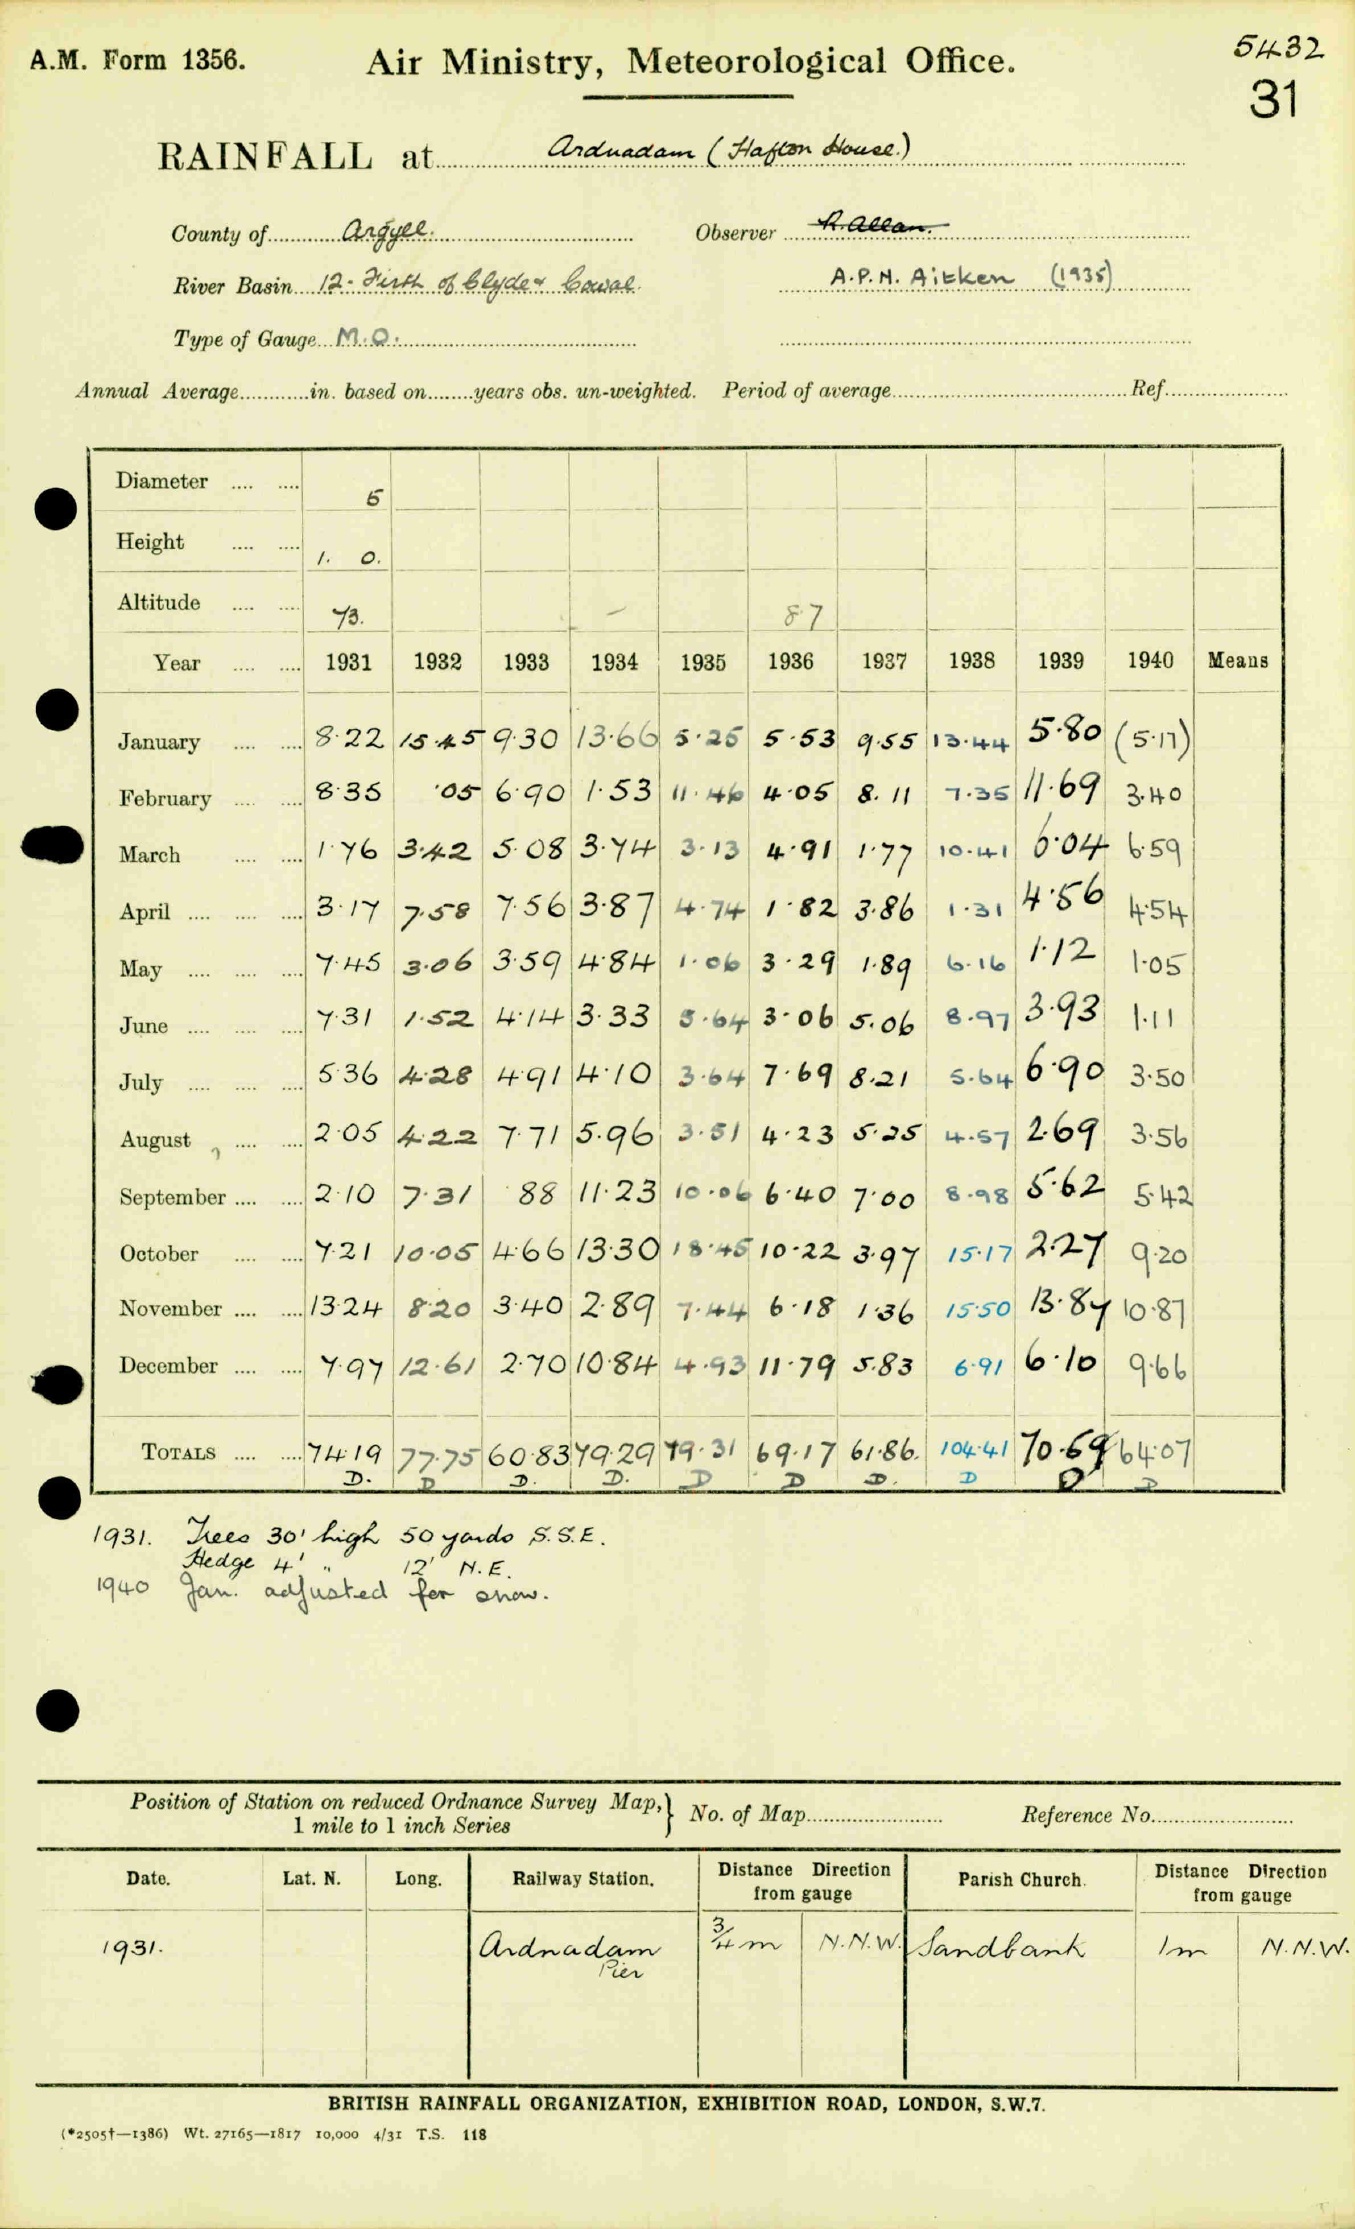 A.M. Form 1356.
Air Ministry, Meteorological Office.
5432
31
RAINFALL at Ardnadam (Hafton House.)
County of Argyll. Observer R. Allan.
River Basin 12. Firth of Clyde & Cowal. A.P.N. Aitken (1935)
Type of Gauge M.O.
Annual Average in. based on years obs. un-weighted. Period of average Ref.
Diameter 5
Height 1. 0.
Altitude 73. – 87
Year 1931 1932 1933 1934 1935 1936 1937 1938 1939 1940 Means
January 8·22 15·45 9·30 13·66 5·25 5·53 9·55 13·44 5·80 (5·17)
February 8·35 ·05 6·90 1·53 11·46 4·05 8·11 7·35 11·69 3·40
March 1·76 3·42 5·08 3·74 3·13 4·91 1·77 10·41 6·04 6·59
April 3·17 7·58 7·56 3·87 4·74 1·82 3·86 1·31 4·56 4·54
May 7·45 3·06 3·59 4·84 1·06 3·29 1·89 6·16 1·12 1·05
June 7·31 1·52 4·14 3·33 5·64 3·06 5·06 8·97 3·93 1·11
July 5·36 4·28 4·91 4·10 3·64 7·69 8·21 5·64 6·90 3·50
August 2·05 4·22 7·71 5·96 3·51 4·23 5·25 4·57 2·69 3·56
September 2·10 7·31 ·88 11·23 10·06 6·40 7·00 8·98 5·62 5·42
October 7·21 10·05 4·66 13·30 18·45 10·22 3·97 15·17 2·27 9·20
November 13·24 8·20 3·40 2·89 7·44 6·18 1·36 15·50 13·87 10·87
December 7·97 12·61 2·70 10·84 4·93 11·79 5·83 6·91 6·10 9·66
TOTALS 74·19 77·75 60·83 79·29 79·31 69·17 61·86. 104·41 70·69 64·07
D. D D. D. D D D. D D D
1931. Trees 30' high 50 yards S.S.E.
Hedge 4' " 12' N.E.
1940 Jan. adjusted for snow.
Position of Station on reduced Ordnance Survey Map, } No. of Map Reference No.
1 mile to 1 inch Series
Date. Lat. N. Long. Railway Station. Distance Direction from gauge Parish Church. Distance Direction from gauge
1931. Ardnadam Pier 3/4 m N.N.W. Sandbank 1m N.N.W.
BRITISH RAINFALL ORGANIZATION, EXHIBITION ROAD, LONDON, S.W.7.
(*2505†—1386) Wt. 27165—1817 10,000 4/31 T.S. 118